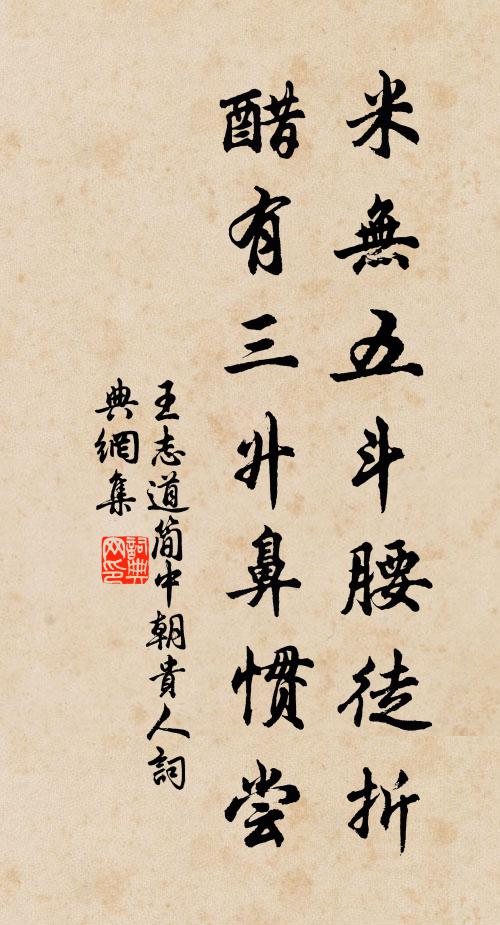 米無五斗腰徒折
醋有三升鼻慣尝
王志道简中朝貴人詞
典網集
詞典
网印